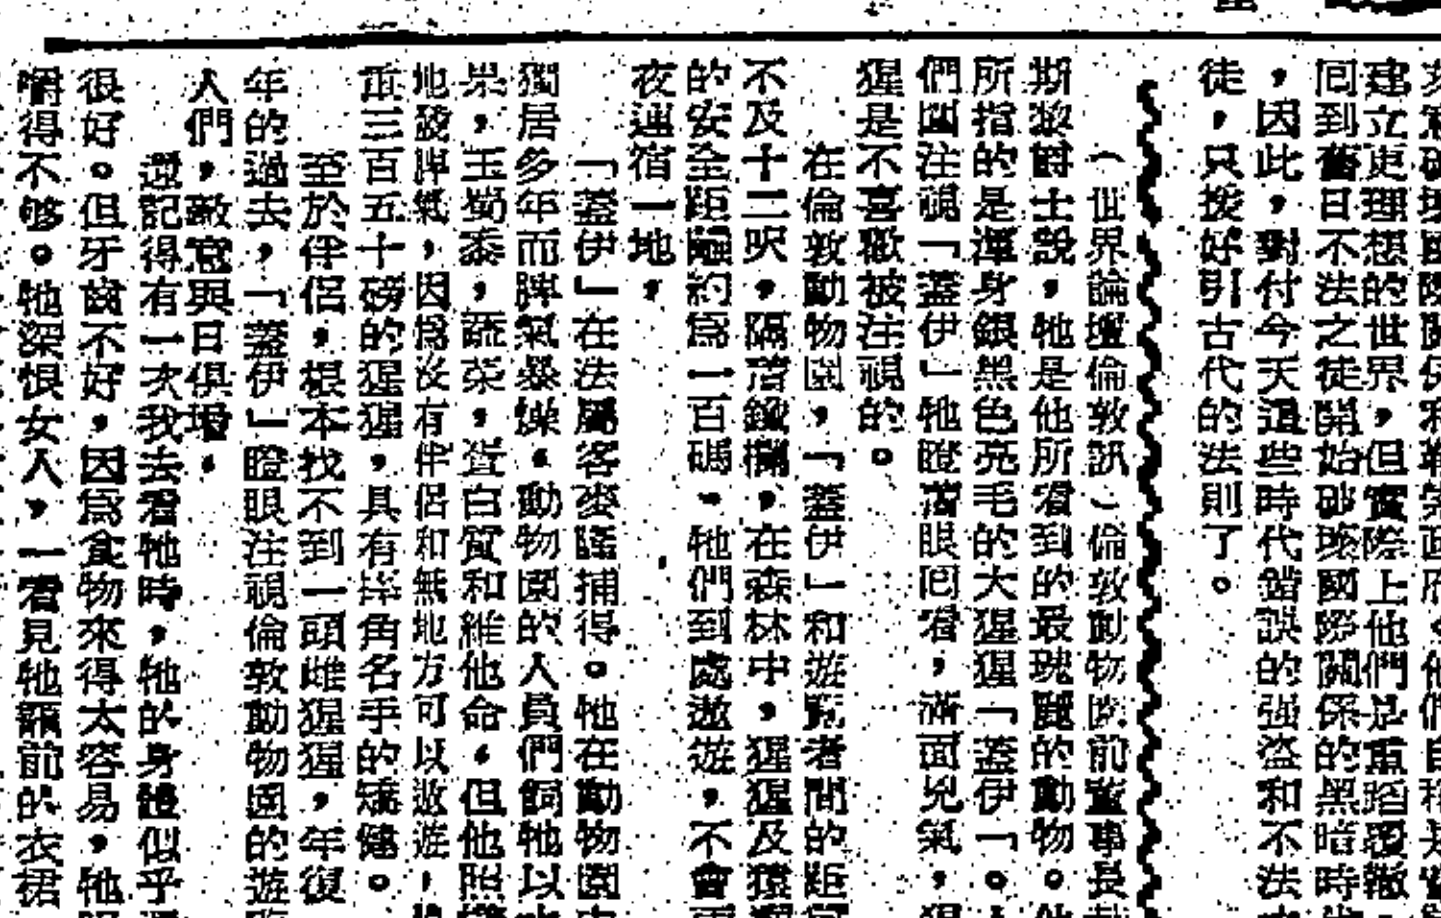 建立更理想的世界，但實際上他們是重蹈覆轍
回到舊日不法之徒開始破壞國際關係的黑暗時
，因此，對付今天這些時代錯誤的强盜和不法
徒，只援好引古代的法則了。
（世界論壇倫敦訊）倫敦動物園前董事長
斯黎爵士說，牠是他所看到的最瑰麗的動物。
所指的是渾身銀黑色亮毛的大猩猩「蓋伊」。
們圍注視「蓋伊」牠瞪着眼回看，滿面兇氣，
猩是不喜歡被注視的。
在倫敦動物園，「蓋伊」和遊覽者間的距
不及十二呎，隔着鐵欄，在森林中，猩猩及
的安全距離約爲一百碼。牠們到處遨遊，不會
夜連宿一地，
「蓋伊」在法屬客麥隆捕得。牠在動物園
獨居多年而脾氣暴燥。動物園的人員們飼牠以
果，玉蜀黍，蔬菜，蛋白質和維他命。但他照
地發脾氣，因爲沒有伴侶和無地方可以遨遊，
重三百五十磅的猩猩，具有拳角名手的矯健。
至於伴侶，根本找不到一頭雌猩猩，年復
年的過去，「蓋伊」瞪眼注視倫敦動物園的遊
人們，敵意與日俱增。
還記得有一次我去看牠時，牠的身體似乎
很好。但牙齒不好，因爲食物來得太容易，牠
嚼得不够。牠深恨女人，一看見牠籠前的衣裙